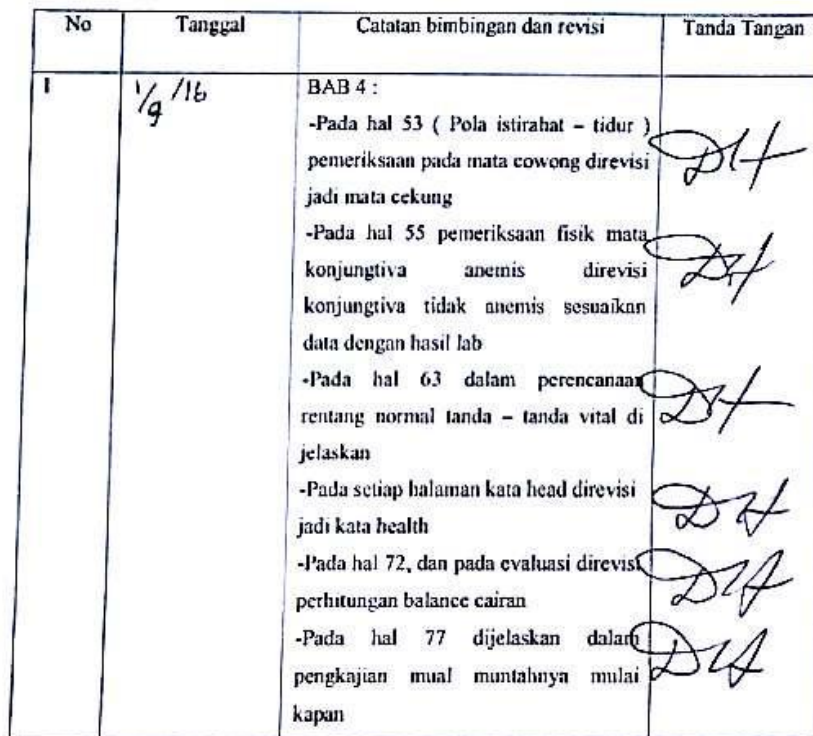 No Tanggal Catatan bimbingan dan revisi Tanda Tangan
1 1/9/16 BAB 4 :
-Pada hal 53 ( Pola istirahat – tidur )
pemeriksaan pada mata cowong direvisi
jadi mata cekung
-Pada hal 55 pemeriksaan fisik mata
konjungtiva anemis direvisi
konjungtiva tidak anemis sesuaikan
data dengan hasil lab
-Pada hal 63 dalam perencanaan
rentang normal tanda – tanda vital di
jelaskan
-Pada setiap halaman kata head direvisi
jadi kata health
-Pada hal 72, dan pada evaluasi direvisi
perhitungan balance cairan
-Pada hal 77 dijelaskan dalam
pengkajian mual muntahnya mulai
kapan